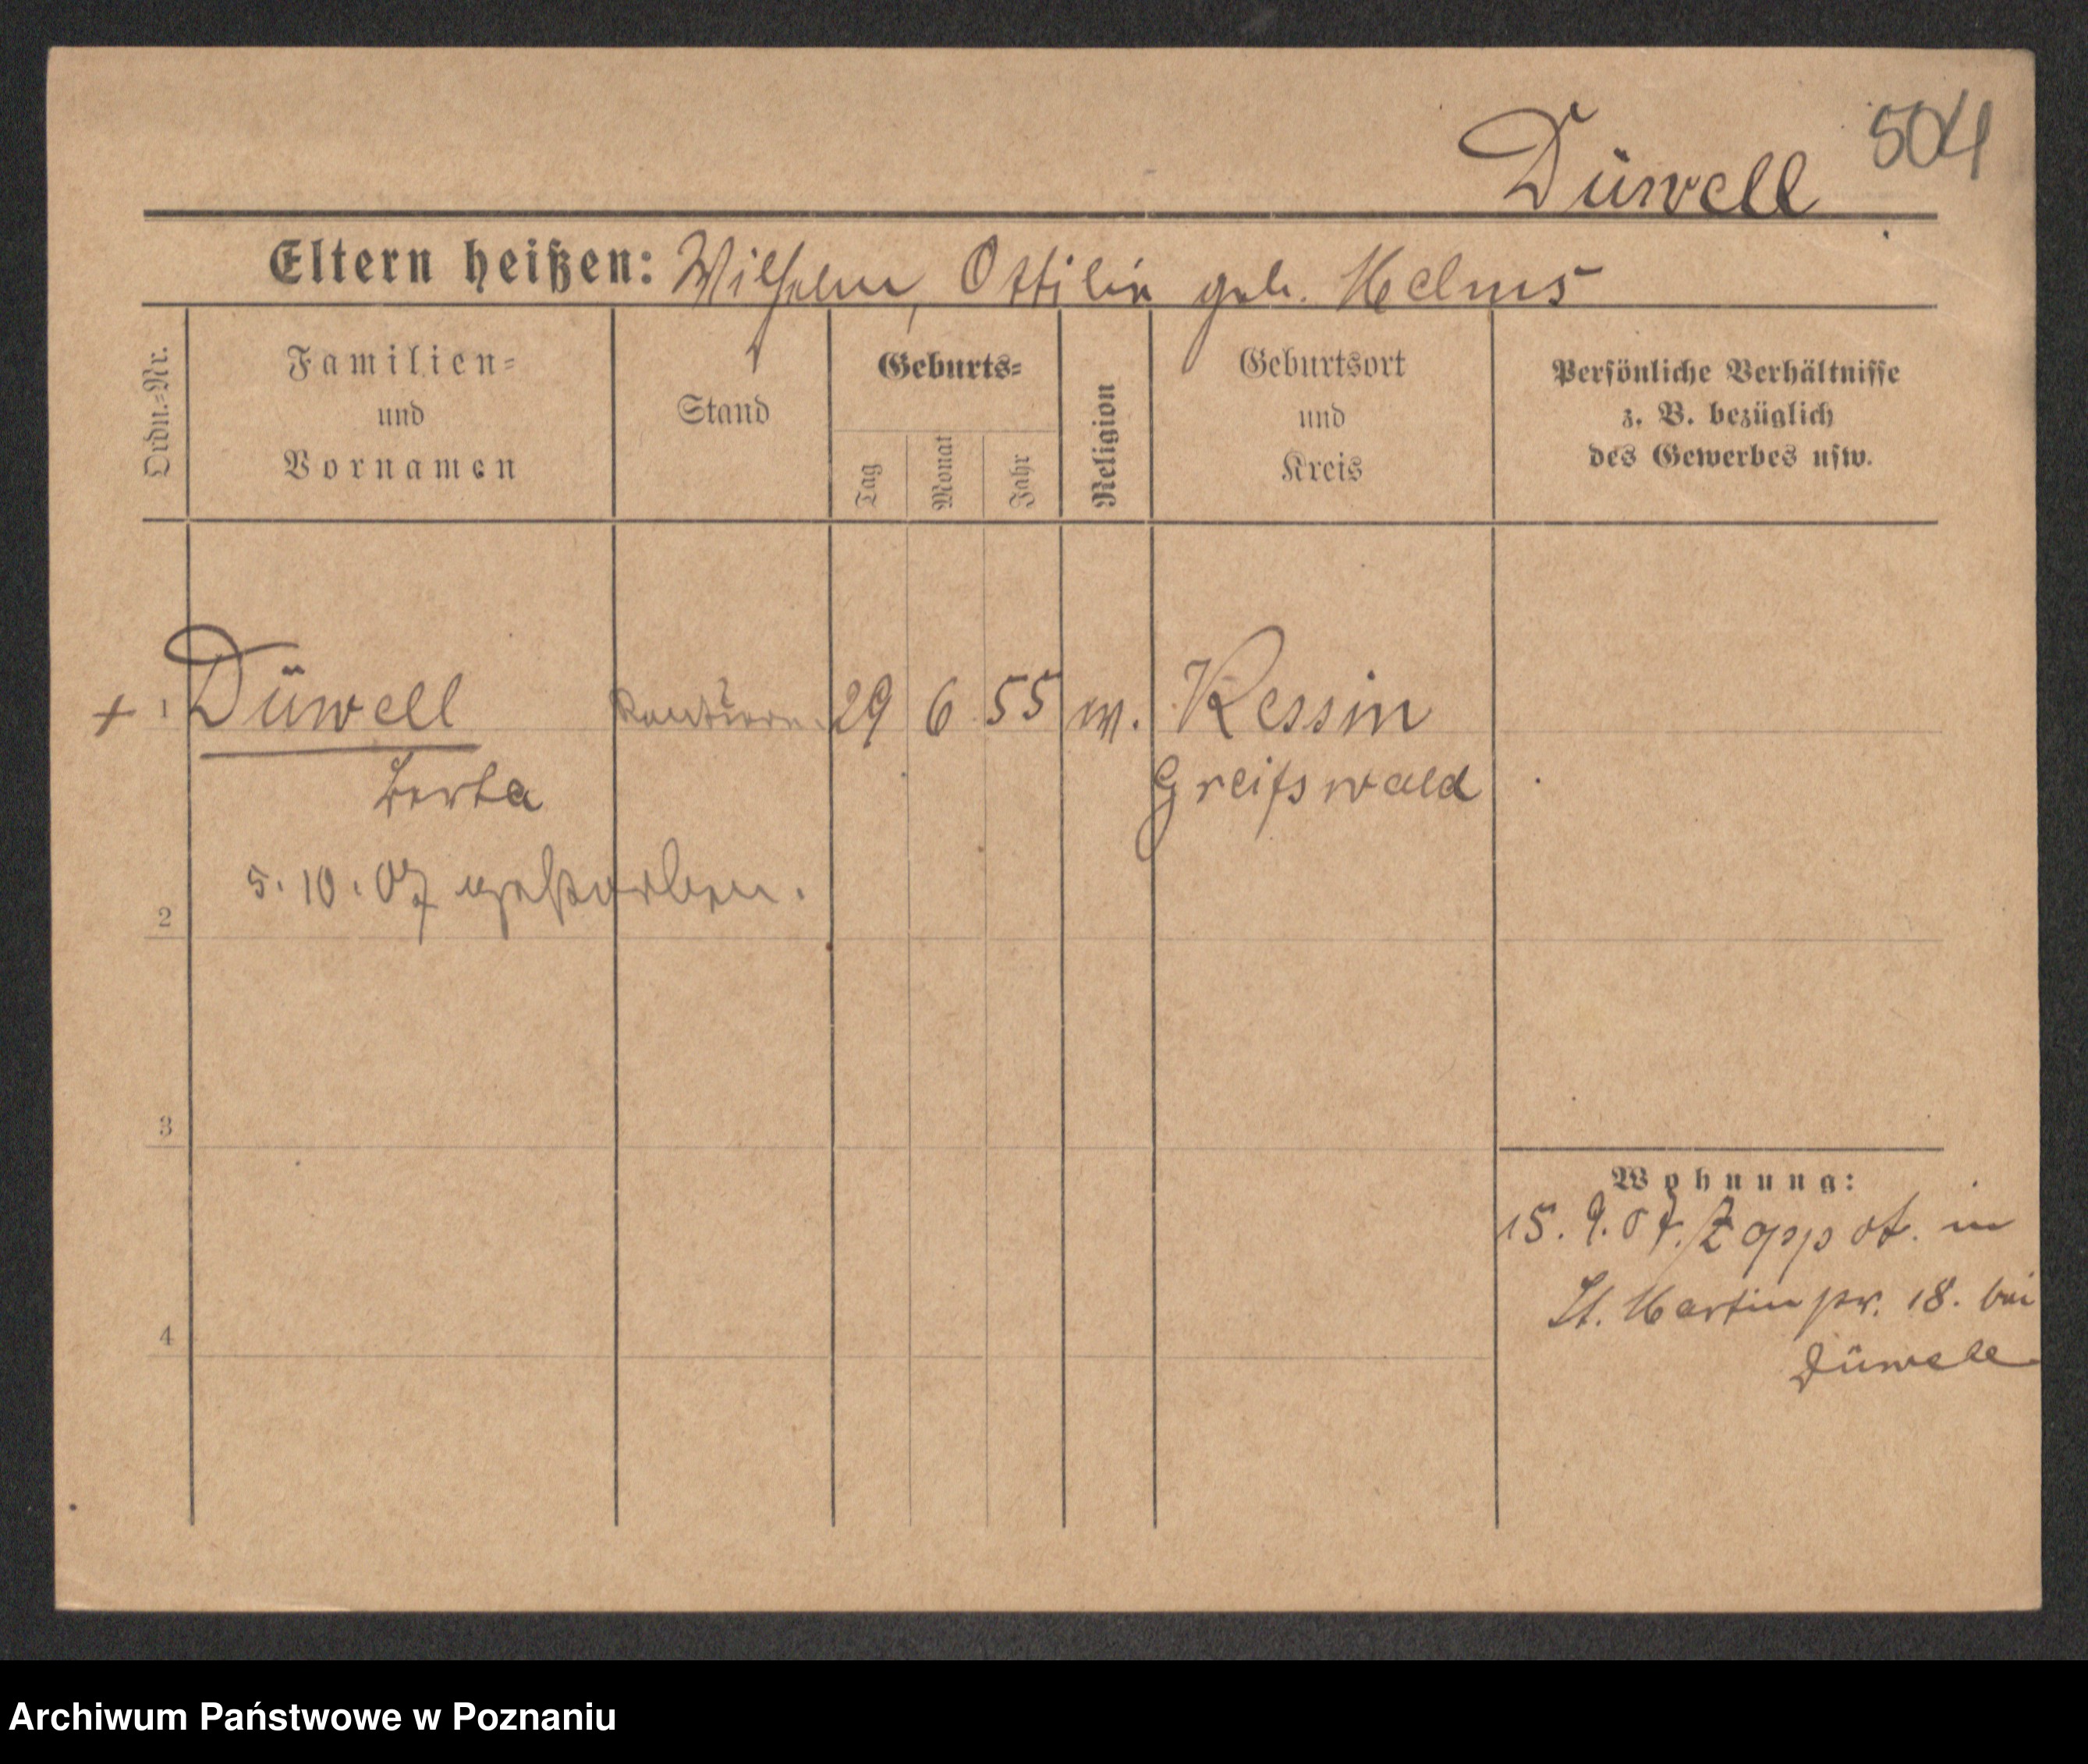 504
Düwell
Eltern heißen: Wilhelm, Ottilie geb. Helms
Ordn.-Nr.
Familien-
und
Vornamen
Stand
Geburts-
Tag
Monat
Jahr
Religion
Geburtsort
und
Kreis
Persönliche Verhältnisse
z. B. bezüglich
des Gewerbes usw.
+ 1 Düwell Rentiere. 29 6 55 Kessin
Berta Greifswald
5. 10. 07 gestorben.
2
3
4
Wohnung:
15. 9. 07. Zoppot. in
St. Martin 18. bei
Düwell
Archiwum Państwowe w Poznaniu